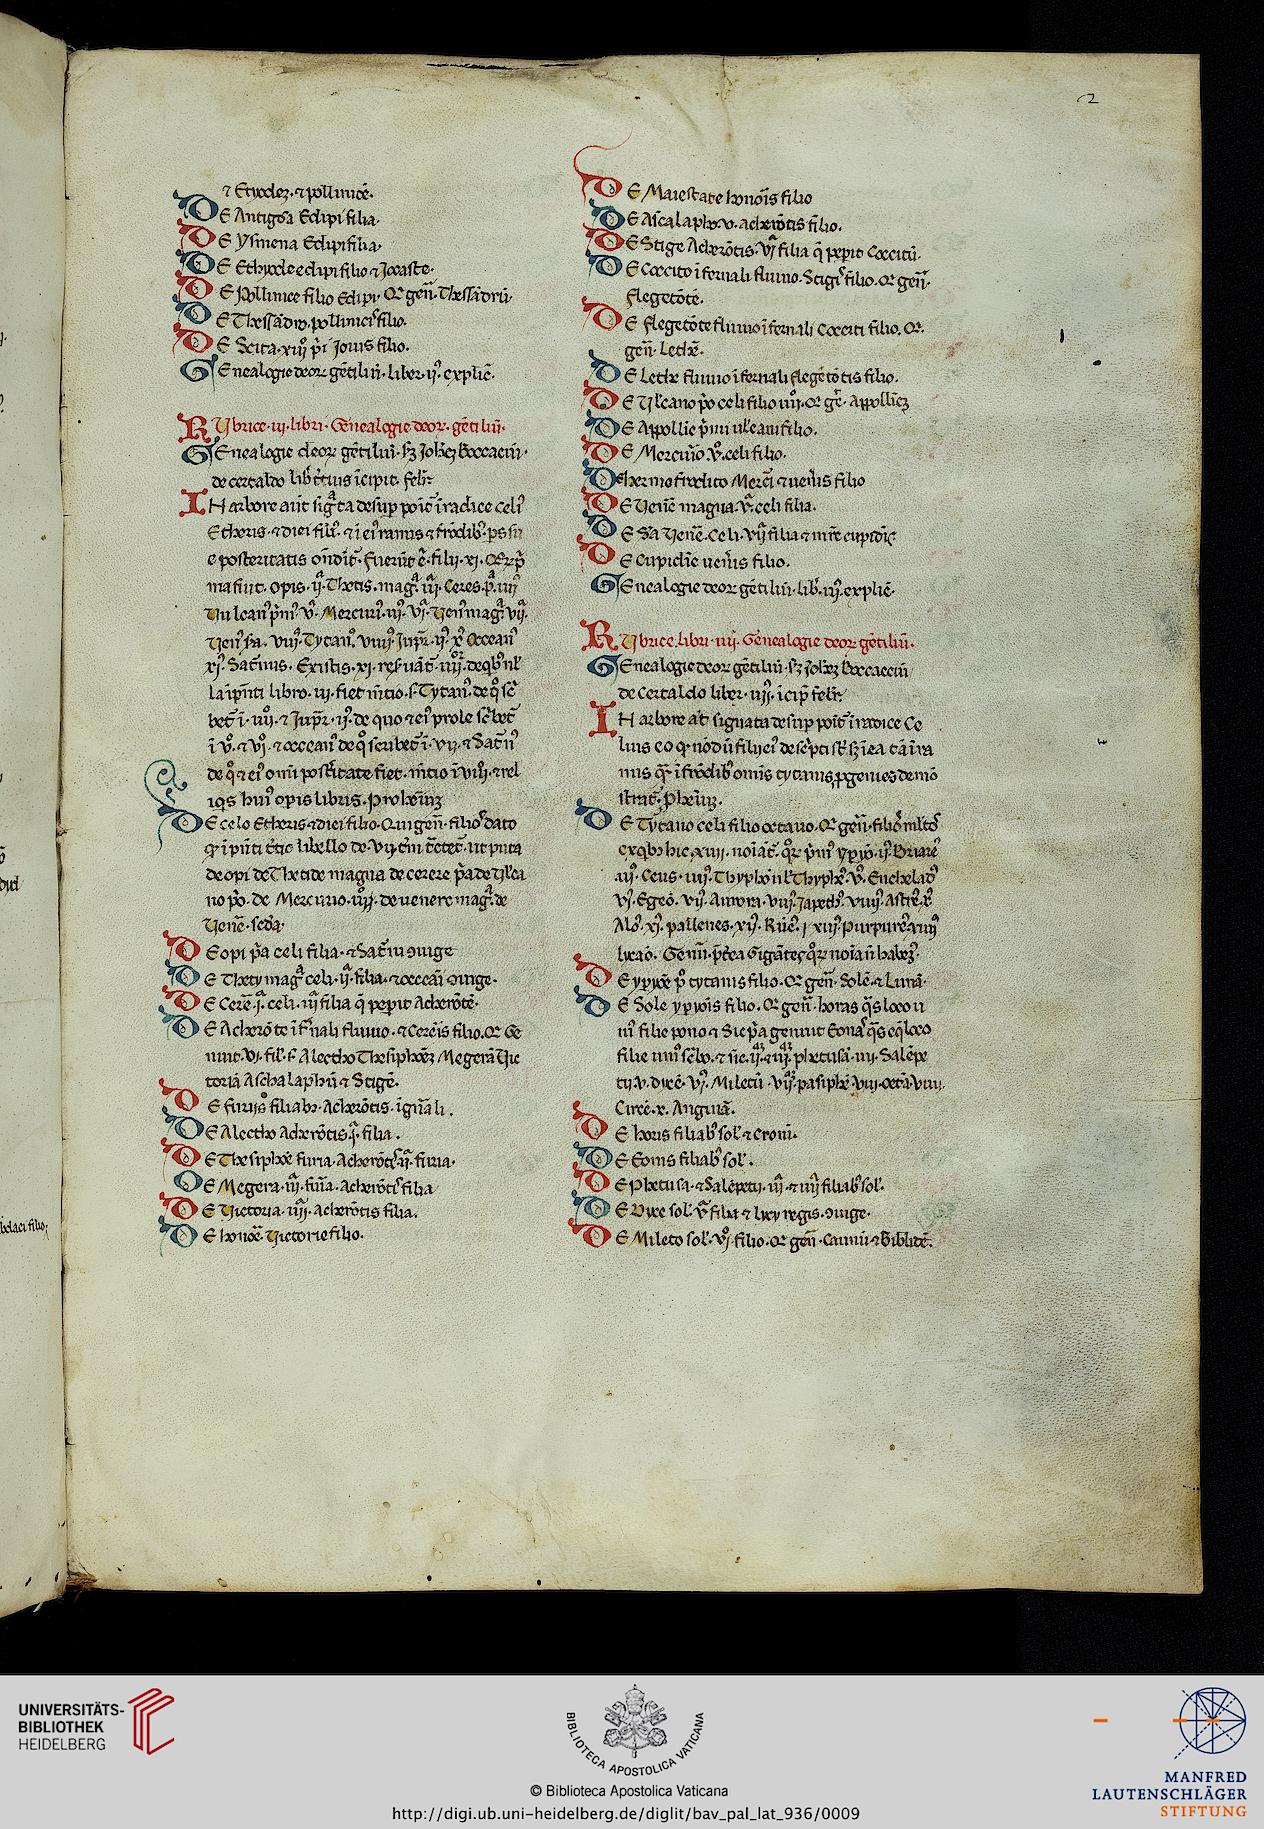 2
⁊ Etyoclez. ⁊ pollinicē.
DE Antigōa Edipi filia.
DE Ysmena Edipi filia.
DE Ethyocle edipi filio ⁊ Jocaste.
DE Pollinice filio Edipi. Qͥ genͫ. Thessādrū.
DE Thessādro. pollinicis filio.
DE Scita. xiiiͦ pͥ Jouis filio.
GEnealogie deoꝝ gētiliū. liber. ijͦ. explic̄.
RUbrice. iij. libri. Genealogie deoꝝ. gētiliū.
GEnealogie deoꝝ gētiliū. ẜꝫ Joh̄eꝫ Boccaciū.
de certaldo lib̄ t̄cius īcipit felr̄.
IN arbore aūt sigͣta desuꝑ poīt̄ ī radice celꝰ
Etheris. ⁊ diei filꝰ. ⁊ ī eiꝰ ramis ⁊ frōdibꝰ. ips su
e posteritatis ondīt̄. Fuerūt .n. filij. xi. Qͦꝝ pͣ
ma fuit. opis. ijͣ. Thetis. magͣ. iijͣ. Ceres. pͣ. iiijͣ
Uulcanꝰ pͥmꝰ. vͦ. Mercuriꝰ. iijꝰ. vjͣ. Uenꝰ magͣ. vijͣ.
Uenꝰ sͣa. viijꝰ. Tytanꝰ. viiijꝰ. Jupr̄. ijꝰ. xͦ. Occeanꝰ
xjꝰ. Sat̄nus. Ex istis. xi. reſuāt̄. iiijͦꝝ. de qͥbꝰ nl̄
la ī pn̄ti libro. iij. fiet mētio. s. Tytanꝰ. de qͦ sc̄
bet̄ ī. iiijͦ. ⁊ Jupr̄. ijꝰ. de quo ⁊ eiꝰ prole sc̄bet̄
ī vͦ. ⁊ vjͦ. ⁊ occeanꝰ de qͦ scribet̄ ī. vij. ⁊ Sat̄nꝰ
de qͦ ⁊ eiꝰ omī post̄itate fiet. mētio ī viijͦ. ⁊ rel
iqͥs huiꝰ opis libris. Prohemiū
DE celo Etheris ⁊ diei filio. Qui genͫ. filios dato
qͥ ī pn̄ti t̄cio libello de. vij. tm̄ t̄ctet̄. ut puta
de opi de Thetide magna de cerere pͣ de Ul̄ca
no pͦo. de Mercurio. iiijͦ. de uenere magͣ. de
Uenē. secda.
DE opi pͣa celi filia. ⁊ Sat̄ni ꝯiuge
DE Thety magͣ celi. ijͣ. filia. ⁊ occeai ꝯiuge.
DE Cerē. jͣ. celi. iijͣ filia q̄ peꝑit Acherōtē.
DE Acherōte īf̄nali fluuio. ⁊ Cereris filio. Qͥ Ge
nuit. vj. filꝰ. s. Alectho Thesiphoeꝫ Megerā Uic
toriā Aschalaphū ⁊ Stigē.
DE furiis filiabꝰ. Acherōtis. ī gn̄ali.
DE Alectho Acherōtis. jͣ. filia.
DE Thesiphoe furia. Acherōtis ijͣ. filia.
DE Megera. iijͣ. furia. Acherōtis filia
DE Uictoria. iiijͣ. Acherōtis filia.
DE honōe. Uictorie filio.
DE Maiestate honōis filio
DE Ascalapho. v. acherōtis filio.
DE Stige Acherōtis. vjͣ filia q̄ peꝑit Cocitū.
DE Cocito īfernali fluuio. Stigis filio. Qͥ genͫ.
Flegetōtē.
DE flegetōte fluuio īfernali Cocciti filio. Qͥ.
genͫ. Lethē.
DE Lethe fluuio īfernali flegetōtis filio.
DE Ul̄cano pͦo celi filio iiijͦ. Qͥ gē. Appolliēꝫ
DE Appollīe pͥmi ulcani filio.
DE Mercuͥo vͦ. celi filio.
DE hermofrodito Mercͥi ⁊ ueneris filio
DE Uenē magna. vͣ. celi filia.
DE Sͣa Uenē. Celi. vijͣ filia ⁊ mr̄e cupidīs
DE Cupidīe ueneris filio.
GEnealogie deoꝝ gētiliū. lib̄. iijͦ. explic̄.
RUbrice. libri. iiij. Genealogie deoꝝ gētiliū.
GEnealogie deoꝝ gētiliū. ẜꝫ Joh̄eꝫ Boccaciū
de Certaldo liber. iiijͦ. īcip̄ felr̄.
IN arbore at̄ signata desuꝑ poīt̄ ī radice Ce
lius eo qͥ nōdū filij eiꝰ descͥpti sūt sꝫ ī ea tā ī ra
mis qͣ ī frōdibꝰ omīs tytanis ꝓgenies demō
strat̄. Phēiū.
DE Tytano celi filio octauo. Qͥ genͫ. filios mltos
ex qͥbꝰ hic. xiiij. noīat̄. qͦꝝ pͥmꝰ yperio. ijꝰ. Briareꝰ
iijꝰ. Ceus. iiijꝰ. Thyphoꝰ ul̄ Thypheꝰ. vͦ. Encheladꝰ
vjꝰ. Egeō. vijͣ. Aurora. viijꝰ. Japethꝰ. viiijꝰ. Astreꝰ. xͦ
Aloꝰ. xjꝰ. pallenes. xijꝰ. Runcꝰ. xiijꝰ. Purpureꝰ xiiijꝰ
lycaō. Genͫ. pͣtea Gigātes qͦꝝ noīa nō habeꝫ.
DE yperioē pͦ tytanis filio. Qͥ genͫ. Solē. ⁊ Lunā.
DE Sole yperiōis filio. Qͥ genͫ. horas qͣs loco u
niꝰ filie pono ⁊ Sic pͣa genuit Eonas qͣs eq̄ loco
filie uniꝰ sc̄bo. ⁊ sic ijͣ. ⁊ iijͣ. phetusā. iiij. Salēpe
tij. v. dircē. vjꝰ. Miletū. vijͣ. pasiphē. viij. octā. viiij.
Circē. x. Angitiā.
DE horis filiabꝰ sol̄. ⁊ cronī.
DE Eonis filiabꝰ sol̄.
DE Phetusa. ⁊ Salēpetij. iijͣ. ⁊ iiijͣ filiabꝰ sol̄.
DE Dyrce sol̄. vͣ filia ⁊ lycy regis. ꝯiuge.
DE Mileto sol̄. vjͦ. filio. Qͥ genͫ. Caunū ⁊ Biblidē.
UNIVERSITÄTS-
BIBLIOTHEK
HEIDELBERG
BIBLIOTECA APOSTOLICA VATICANA
© Biblioteca Apostolica Vaticana
http://digi.ub.uni-heidelberg.de/diglit/bav_pal_lat_936/0009
MANFRED
LAUTENSCHLÄGER
STIFTUNG